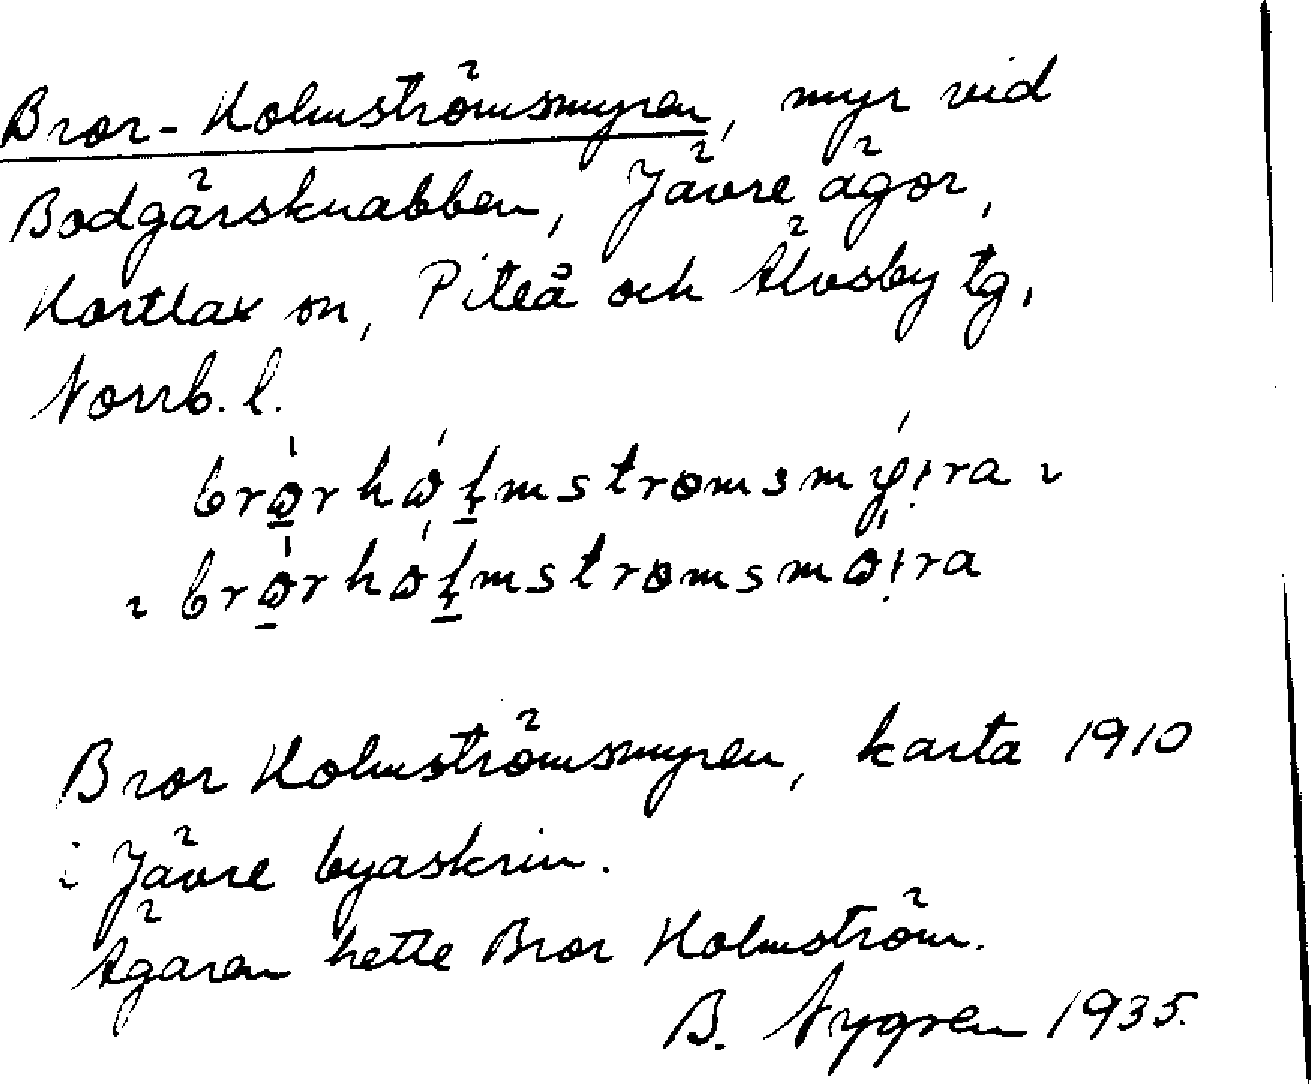 Bror-Holmströmsmyren, myr vid
Bodgärsknabben, Jävre ägor,
Hortlax sn, Piteå och Älvsby tg,
Norrb. l.
Bror Holmströmsmyren, karta 1910
i Jävre byaskrin.
Ägaren hette Bror Holmström.
B. Nygren 1935.